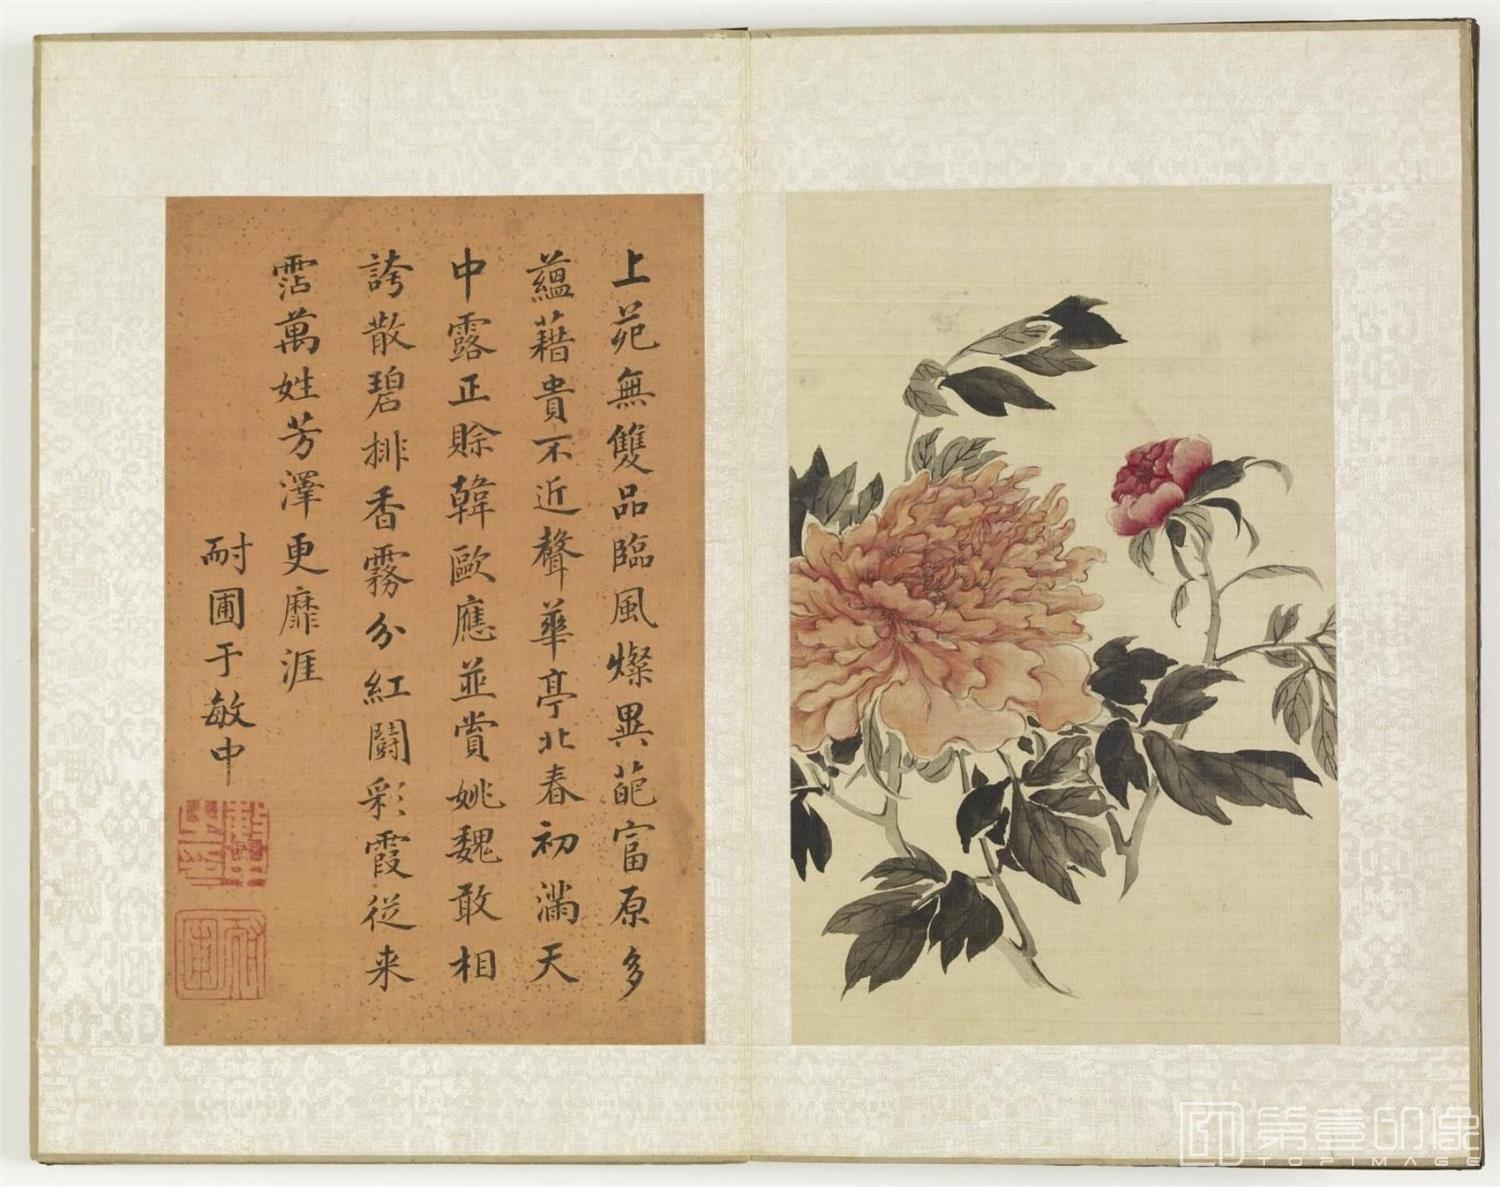 上苑無雙品臨風燦異葩富原多
蘊藉貴不近聲華亭北春初滿天
中露正賒韓歐應並賞姚魏敢相
誇散碧排香霧分紅鬪彩霞從来
霑萬姓芳澤更靡涯
耐圃于敏中
第壹印像
TOPIMAGE